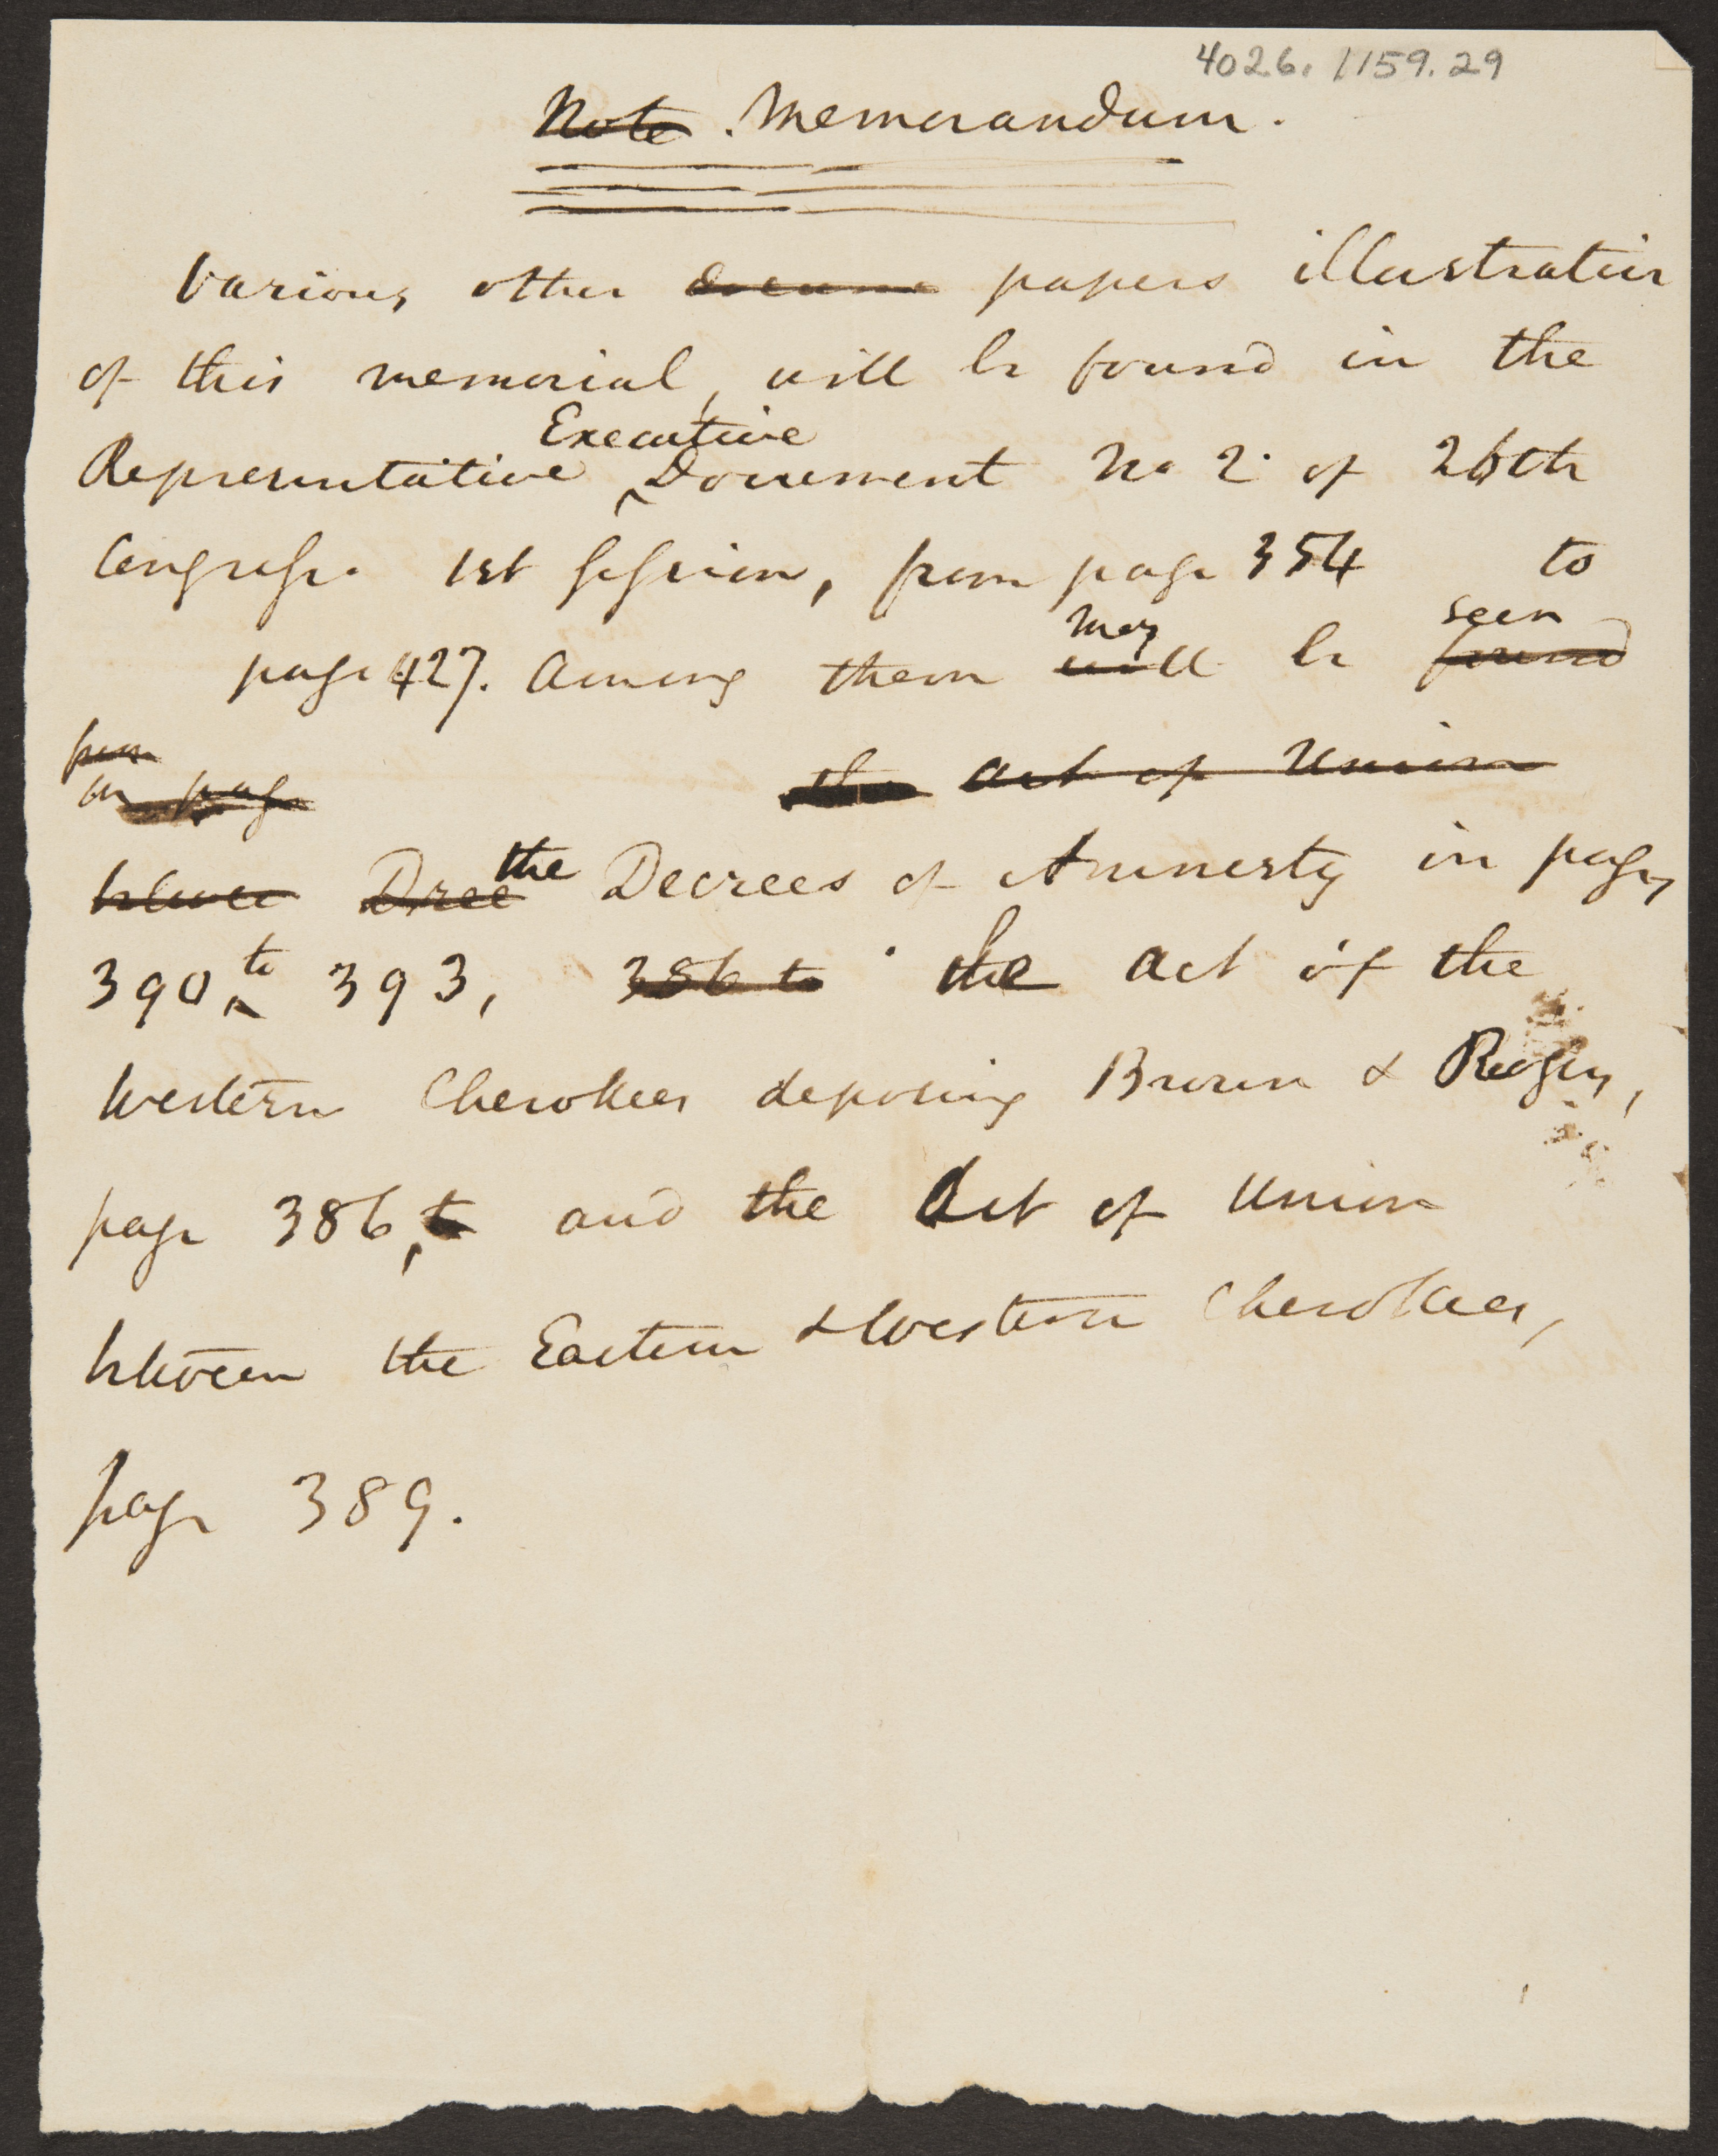 4026.1159.29
Note. Memorandum.
Various other docume papers illustrative
of this memorial, will be found in the
Executive
Representative Document No 2. of 26th
Congress. 1st Session, from page 354 to
may seen
page 427. Among them will be found
from
on page the act of Union
betwee Dree the Decrees of Amnesty in pages
390, to 393, 386 to the act of the
Western Cherokees deposing Brown & Rogers,
page 386, to and the Act of Union
between the Eastern & Western Cherokees,
page 389.